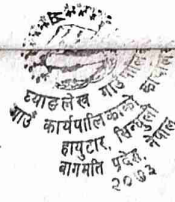 घ्याङलेख गाउँपालिका
गाउँ कार्यपालिकाको कार्यालय
हायुटार, सिन्धुली
बागमति प्रदेश, नेपाल
२०७३